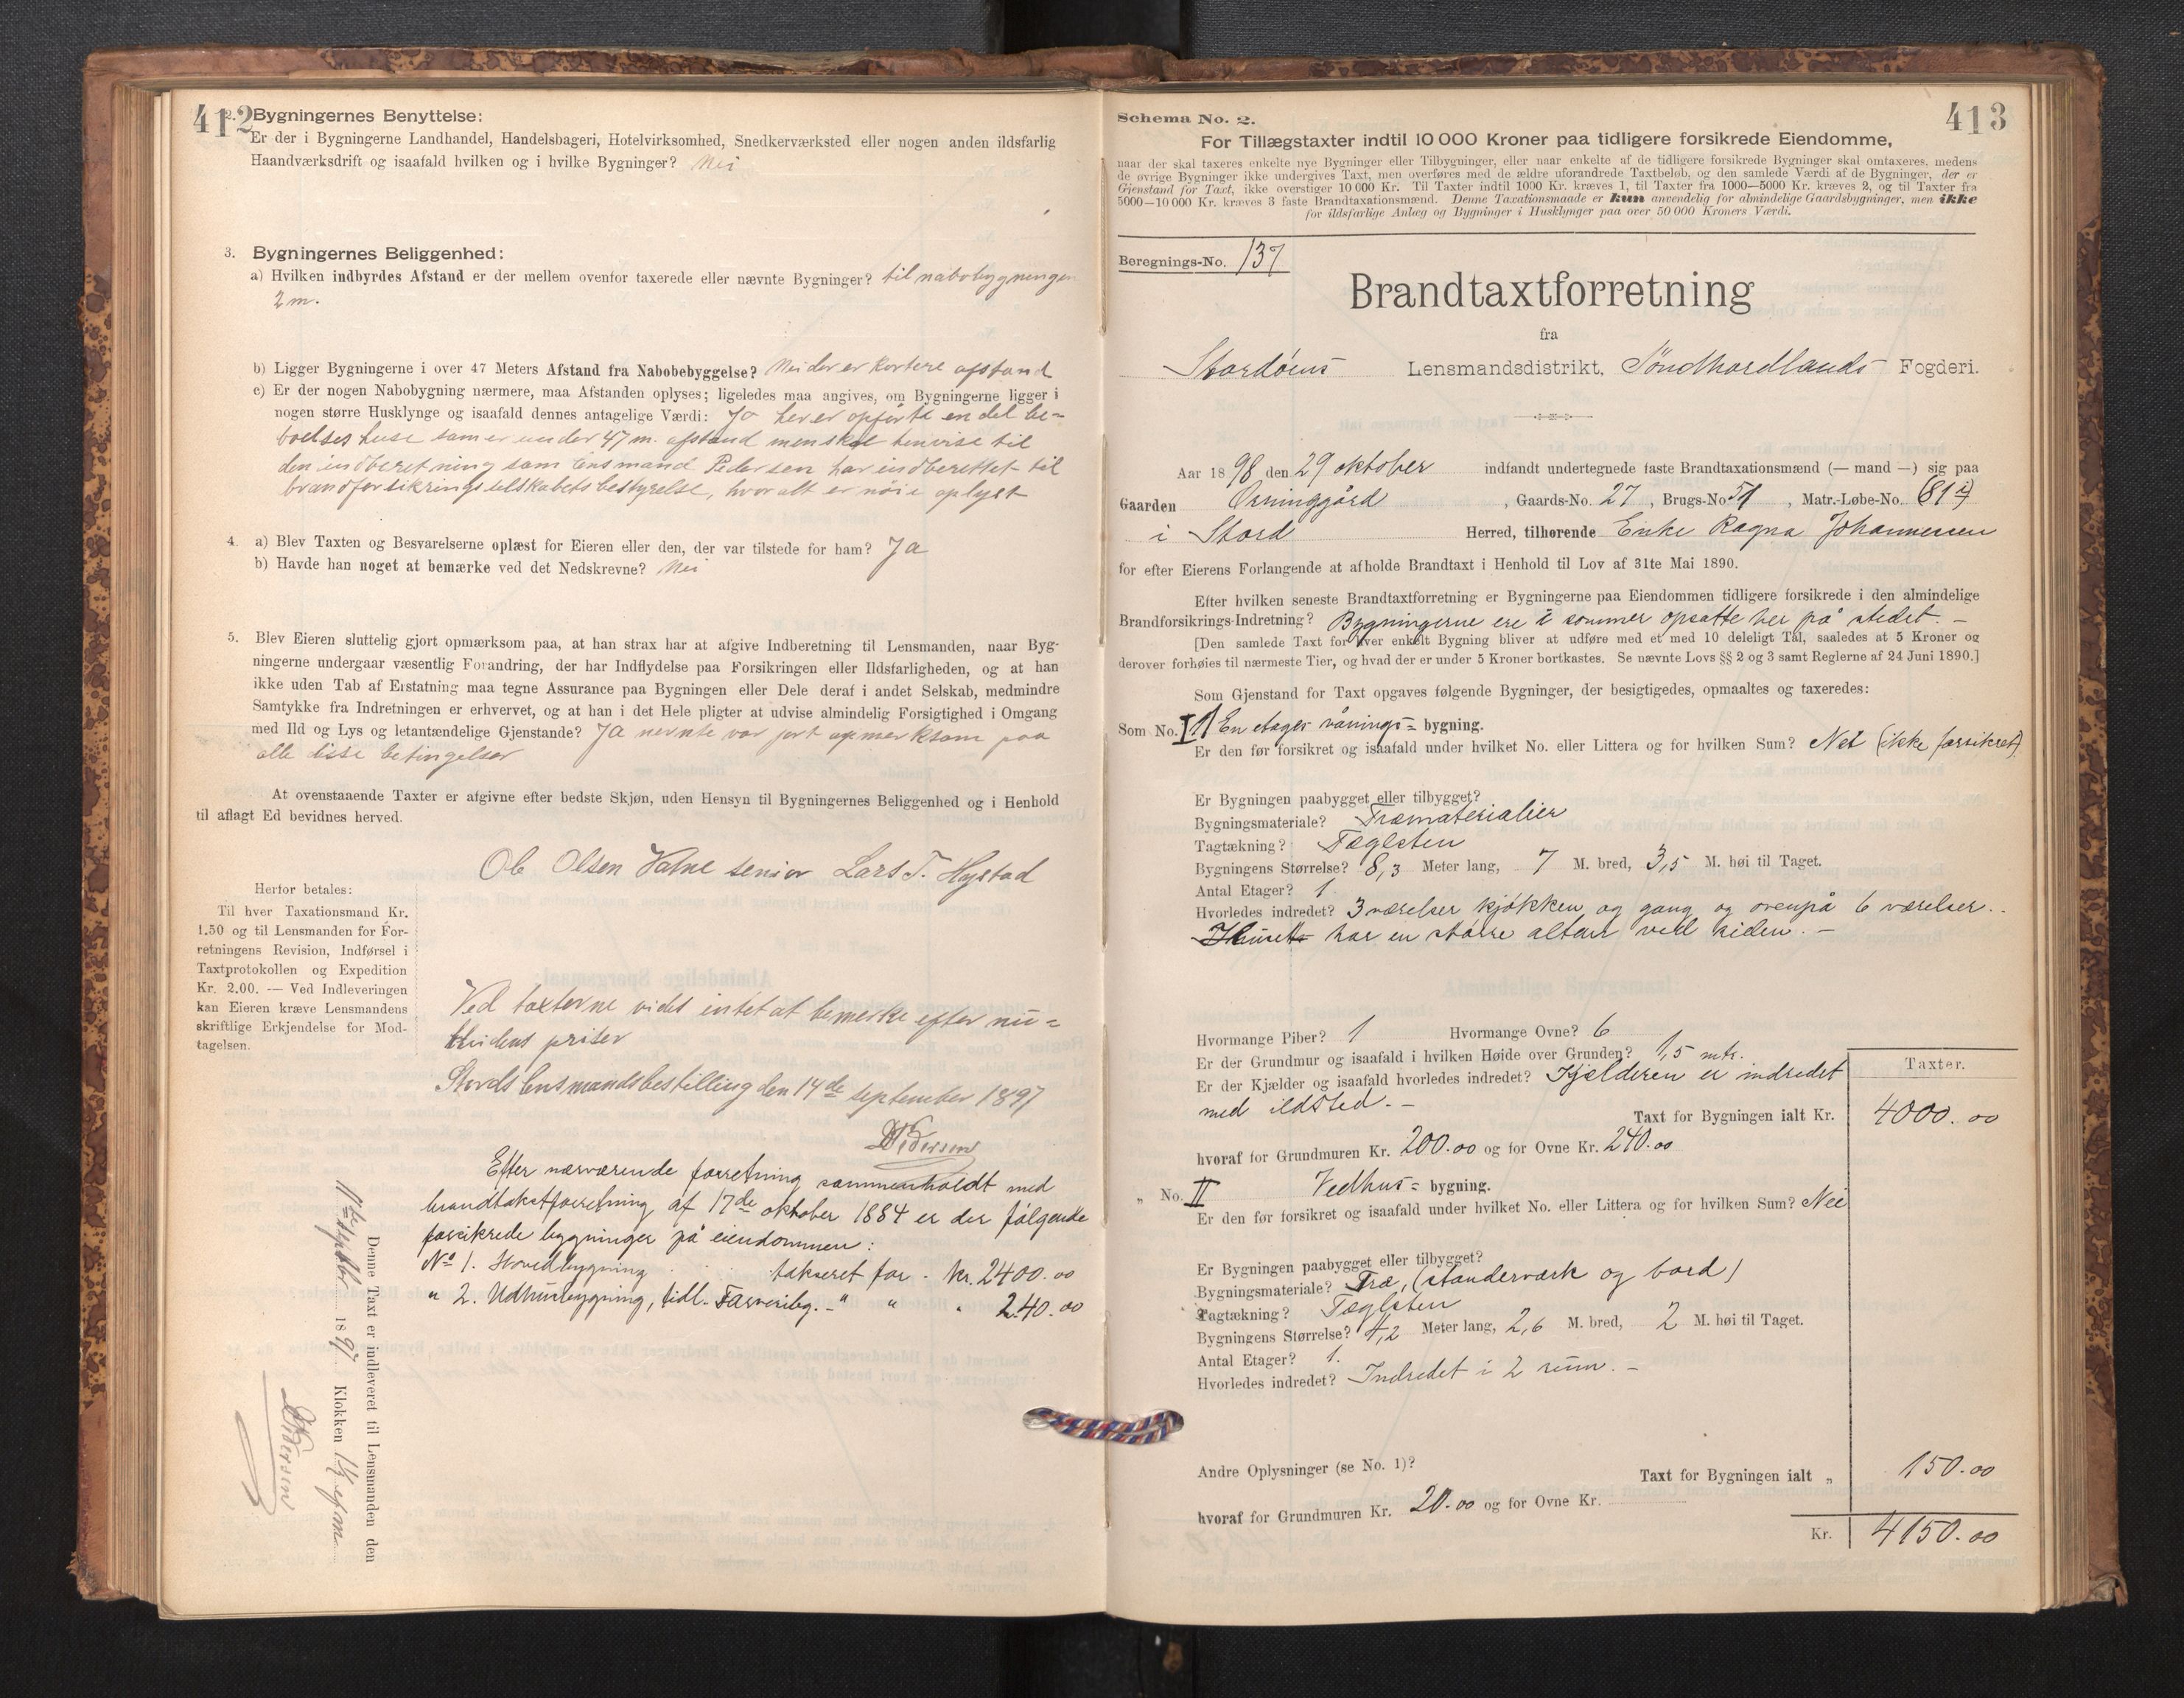 412
2. Bygningernes Benyttelse:
Er der i Bygningerne Landhandel, Handelsbageri, Hotelvirksomhed, Snedkerværksted eller nogen anden ildsfarlig
Haandværksdrift og isaafald hvilken og i hvilke Bygninger? Nei
3. Bygningernes Beliggenhed:
a) Hvilken indbyrdes Afstand er der mellem ovenfor taxerede eller nævnte Bygninger? til nabobygningen
2 m.
b) Ligger Bygningerne i over 47 Meters Afstand fra Nabobebyggelse? Nei der er kortere afstand
c) Er der nogen Nabobygning nærmere, maa Afstanden oplyses; ligeledes maa angives, om Bygningerne ligger i
nogen større Husklynge og isaafald dennes antagelige Værdi: Ja her er opførte en del be-
boelses huse som er under 47 m. afstand men skal henvise til
den indberetning som lensmand Pedersen har indberettet til
brandforsikringsselskabets bestyrelse, hvor alt er nøie oplyst
4. a) Blev Taxten og Besvarelserne oplæst for Eieren eller den, der var tilstede for ham? Ja
b) Havde han noget at bemærke ved det Nedskrevne? Nei
5. Blev Eieren sluttelig gjort opmærksom paa, at han strax har at afgive Indberetning til Lensmanden, naar Byg-
ningerne undergaar væsentlig Forandring, der har Indflydelse paa Forsikringen eller Ildsfarligheden, og at han
ikke uden Tab af Erstatning maa tegne Assurance paa Bygningen eller Dele deraf i andet Selskab, medmindre
Samtykke fra Indretningen er erhvervet, og at han i det Hele pligter at udvise almindelig Forsigtighed i Omgang
med Ild og Lys og letantændelige Gjenstande? Ja nevnte var jort opmerksom paa
alle disse betingelser
At ovenstaaende Taxter er afgivne efter bedste Skjøn, uden Hensyn til Bygningernes Beliggenhed og i Henhold
til aflagt Ed bevidnes herved.
Ole Olsen Vatne senior Lars T. Hystad
Herfor betales:
Til hver Taxationsmand Kr.
1.50 og til Lensmanden for For-
retningens Revision, Indførsel i
Taxtprotokollen og Expedition
Kr. 2.00. — Ved Indleveringen
kan Eieren kræve Lensmandens
skriftlige Erkjendelse for Mod-
tagelsen.
Ved taxterne vides intet at bemerke efter nu-
tidens priser
Stords lensmandsbestilling den 14de september 1897
Pedersen
Efter nærværende forretning sammenholdt med
brandtakstforretning af 17de oktober 1884 er der følgende
forsikrede bygninger på eiendommen:
No 1. Hovedbygning takseret for - kr. 2400.00
" 2. Udhusbygning, tidl. Farveribg. - " " " 240.00
Denne Taxt er indleveret til Lensmanden den
11te septbr. 1897 Klokken 1½ efm.
Pedersen
413
Schema No. 2.
For Tillægstaxter indtil 10 000 Kroner paa tidligere forsikrede Eiendomme,
naar der skal taxeres enkelte nye Bygninger eller Tilbygninger, eller naar enkelte af de tidligere forsikrede Bygninger skal omtaxeres, medens
de øvrige Bygninger ikke undergives Taxt, men overføres med de ældre uforandrede Taxtbeløb, og den samlede Værdi af de Bygninger, der er
Gjenstand for Taxt, ikke overstiger 10 000 Kr. Til Taxter indtil 1000 Kr. kræves 1, til Taxter fra 1000—5000 Kr. kræves 2, og til Taxter fra
5000—10 000 Kr. kræves 3 faste Brandtaxationsmænd. Denne Taxationsmaade er kun anvendelig for almindelige Gaardsbygninger, men ikke
for ildsfarlige Anlæg og Bygninger i Husklynger paa over 50 000 Kroners Værdi.
Beregnings-No. 137
Brandtaxtforretning
fra
Stordøens Lensmandsdistrikt, Søndhordlands Fogderi.
Aar 1898 den 29 oktober indfandt undertegnede faste Brandtaxationsmænd (— mand —) sig paa
Gaarden Orninggård, Gaards-No. 27, Brugs-No 51, Matr.-Løbe-No. (81 i)
i Stord Herred, tilhørende Enke Ragna Johannessen
for efter Eierens Forlangende at afholde Brandtaxt i Henhold til Lov af 31te Mai 1890.
Efter hvilken seneste Brandtaxtforretning er Bygningerne paa Eiendommen tidligere forsikrede i den almindelige
Brandforsikrings-Indretning? Bygningerne ere i sommer opsatte her på stedet. -
[Den samlede Taxt for hver enkelt Bygning bliver at udføre med et med 10 deleligt Tal, saaledes at 5 Kroner og
derover forhøies til nærmeste Tier, og hvad der er under 5 Kroner bortkastes. Se nævnte Lovs §§ 2 og 3 samt Reglerne af 24 Juni 1890.]
Som Gjenstand for Taxt opgaves følgende Bygninger, der besigtigedes, opmaaltes og taxeredes:
Som No. I 1 En etages vånings- bygning.
Er den før forsikret og isaafald under hvilket No. eller Littera og for hvilken Sum? Nei (ikke forsikret)
Er Bygningen paabygget eller tilbygget?
Bygningsmateriale? Træmaterialier
Tagtækning? Taglsten
Bygningens Størrelse? 8,3 Meter lang, 7 M. bred, 3,5 M. høi til Taget.
Antal Etager? 1
Hvorledes indredet? 3 værelser kjøkken og gang og ovenpå 6 værelser.
Huset har en større altan ved siden. -
Hvormange Piber? 1 Hvormange Ovne? 6
Er der Grundmur og isaafald i hvilken Høide over Grunden? 1,5 mtr.
Er der Kjælder og isaafald hvorledes indredet? Kjælderen er indredet
med ildsted. -
Taxter.
Taxt for Bygningen ialt Kr. 4000.00
hvoraf for Grundmuren Kr. 200.00 og for Ovne Kr. 240.00
" No. II Vedhus- bygning.
Er den før forsikret og isaafald under hvilket No. eller Littera og for hvilken Sum? Nei
Er Bygningen paabygget eller tilbygget?
Bygningsmateriale? Træ, (standerværk og bord)
Tagtækning? Taglsten
Bygningens Størrelse? 4,2 Meter lang, 2,6 M. bred, 2 M. høi til Taget.
Antal Etager? 1.
Hvorledes indredet? Indredet i 2 rum. -
Andre Oplysninger (se No. 1)?
Taxt for Bygningen ialt " 150.00
hvoraf for Grundmuren Kr. 20.00 og for Ovne Kr.
Kr. 4150.00